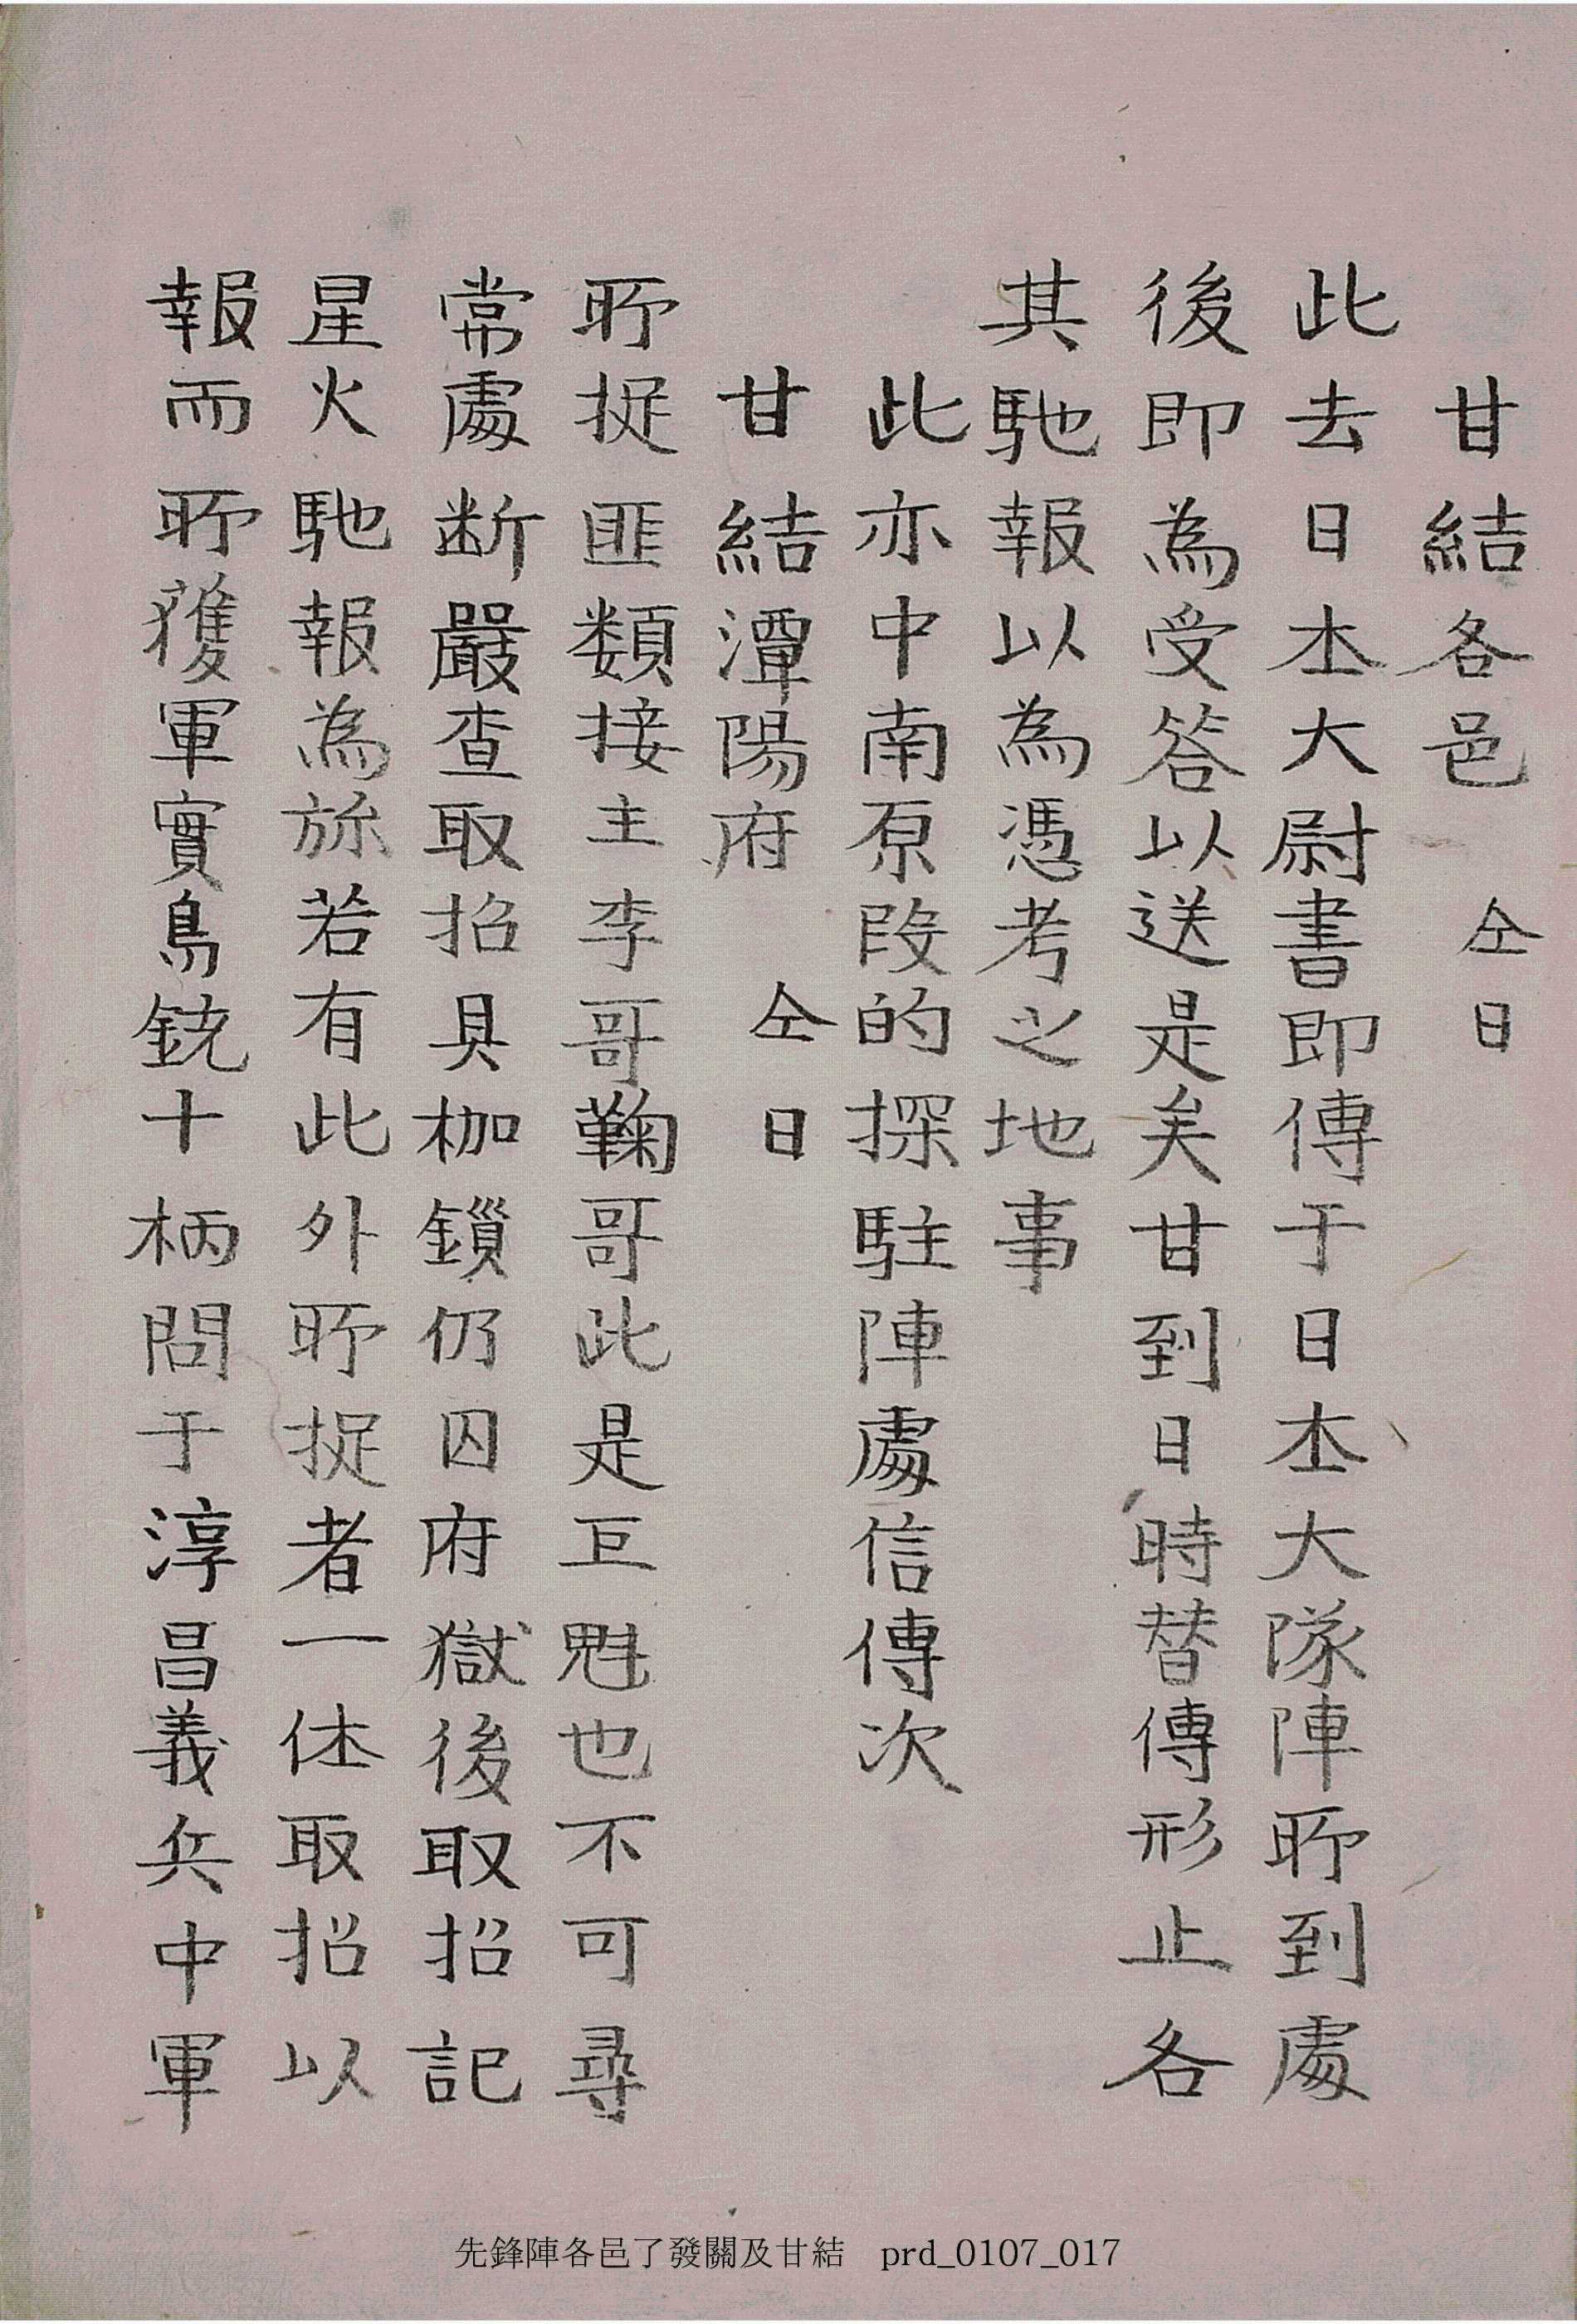 甘結各邑　仝日
此去日本大尉書即傳于日本大隊陣所到處
後即為受答以送是矣甘到日時替傳形止各
其馳報以為憑考之地事
此亦中南原段的探駐陣處信傳次
甘結潭陽府　仝日
所捉匪類接主李哥鞠哥此是巨魁也不可尋
常處断嚴查取招具枷鎖仍囚府獄後取招記
星火馳報為旀若有此外所捉者一体取招以
報而所獲軍實鳥銃十柄問于淳昌義兵中軍
先鋒陣各邑了發關及甘結 prd_0107_017